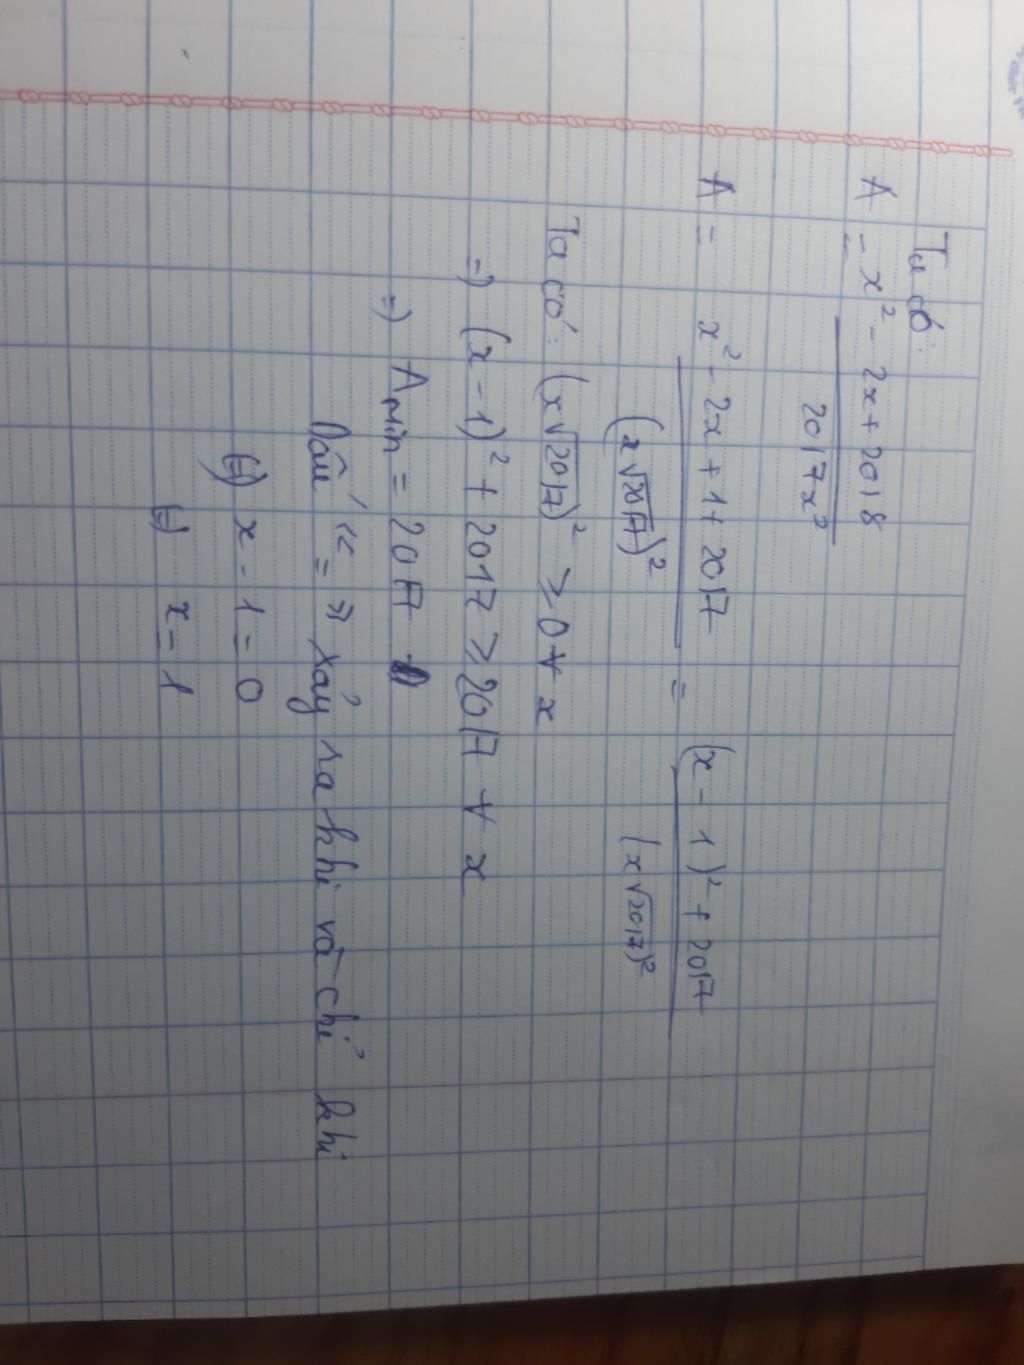 Ta có:
A = x² - 2x + 2018
2017x²
A = x² - 2x + 1 + 2017 = (x - 1)² + 2017
(x√2017)² (x√2017)²
Ta có: (x√2017)² ≥ 0 ∀ x
=) (x - 1)² + 2017 ≥ 2017 ∀ x
=) Amin = 2017
Dấu "=" xảy ra khi và chỉ khi
(=) x - 1 = 0
(=) x = 1